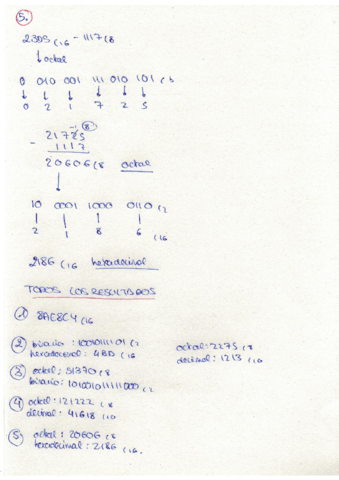 5.
23D5 (16 - 1117 (8
↓ octal
0 010 001 111 010 101 (2
↓ ↓ ↓ ↓ ↓ ↓
0 2 1 7 2 5
-1 8
21725
- 1117
20606 (8 octal
↓
10 0001 1000 0110 (2
| | | |
2 1 8 6 (16
2186 (16 hexadecimal
TODOS LOS RESULTADOS
1 8AE8C4 (16
2 binario: 10010111101 (2 octal: 2275 (8
hexadecimal: 4BD (16 decimal: 1213 (10
3 octal: 51370 (8
binario: 101001011111000 (2
4 octal: 121222 (8
decimal: 41618 (10
5 octal: 20606 (8
hexadecimal: 2186 (16.